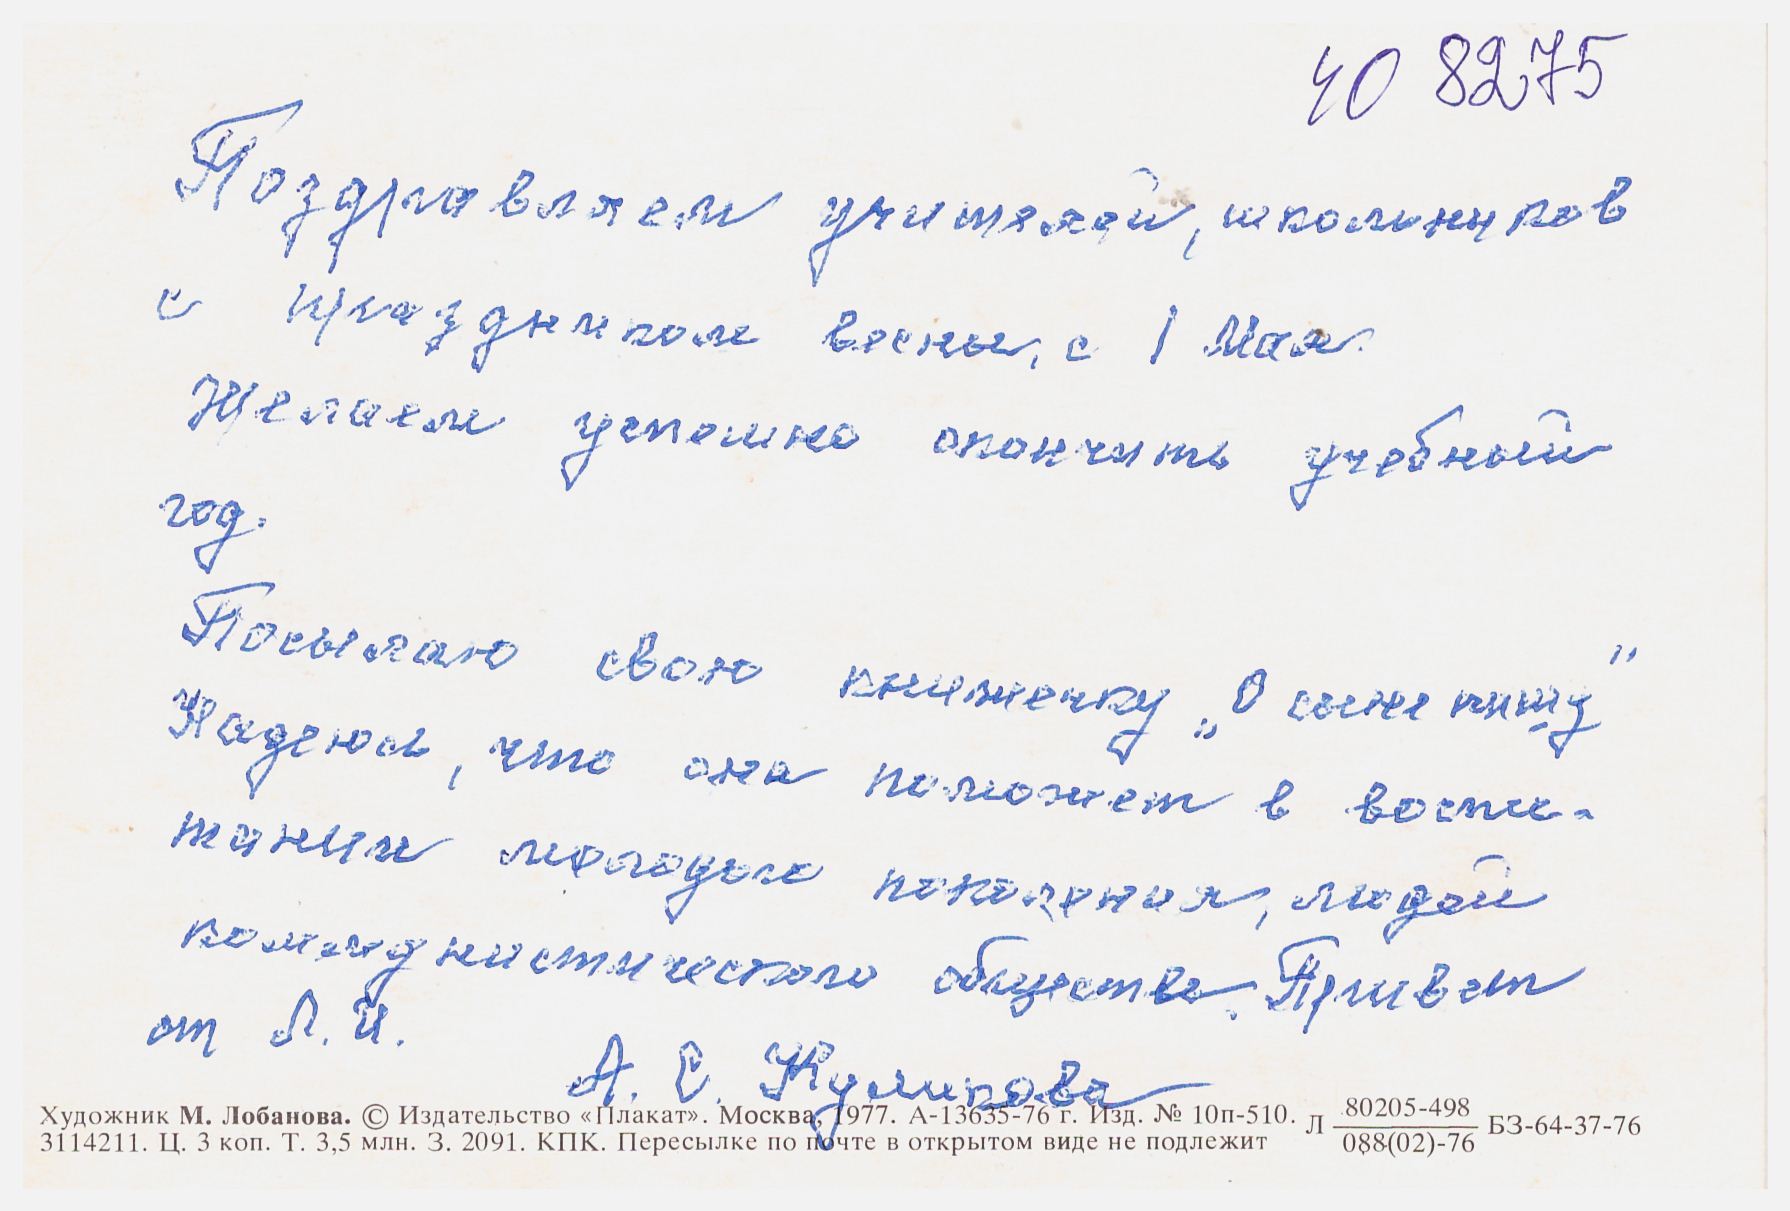 40 8275
Поздравляем учителей, школьников
с праздником весны, с 1 Мая.
Желаем успешно окончить учебный
год.
Посылаю свою книжечку „О сыне пишу”
Надеюсь, что она поможет в воспи-
тании молодого поколения, людей
коммунистического общества. Привет
от Л. И.
А. С. Куликова
Художник М. Лобанова. © Издательство «Плакат». Москва, 1977. А-13635-76 г. Изд. № 10п-510. Л 80205-498 БЗ-64-37-76
088(02)-76
3114211. Ц. 3 коп. Т. 3,5 млн. З. 2091. КПК. Пересылке по почте в открытом виде не подлежит